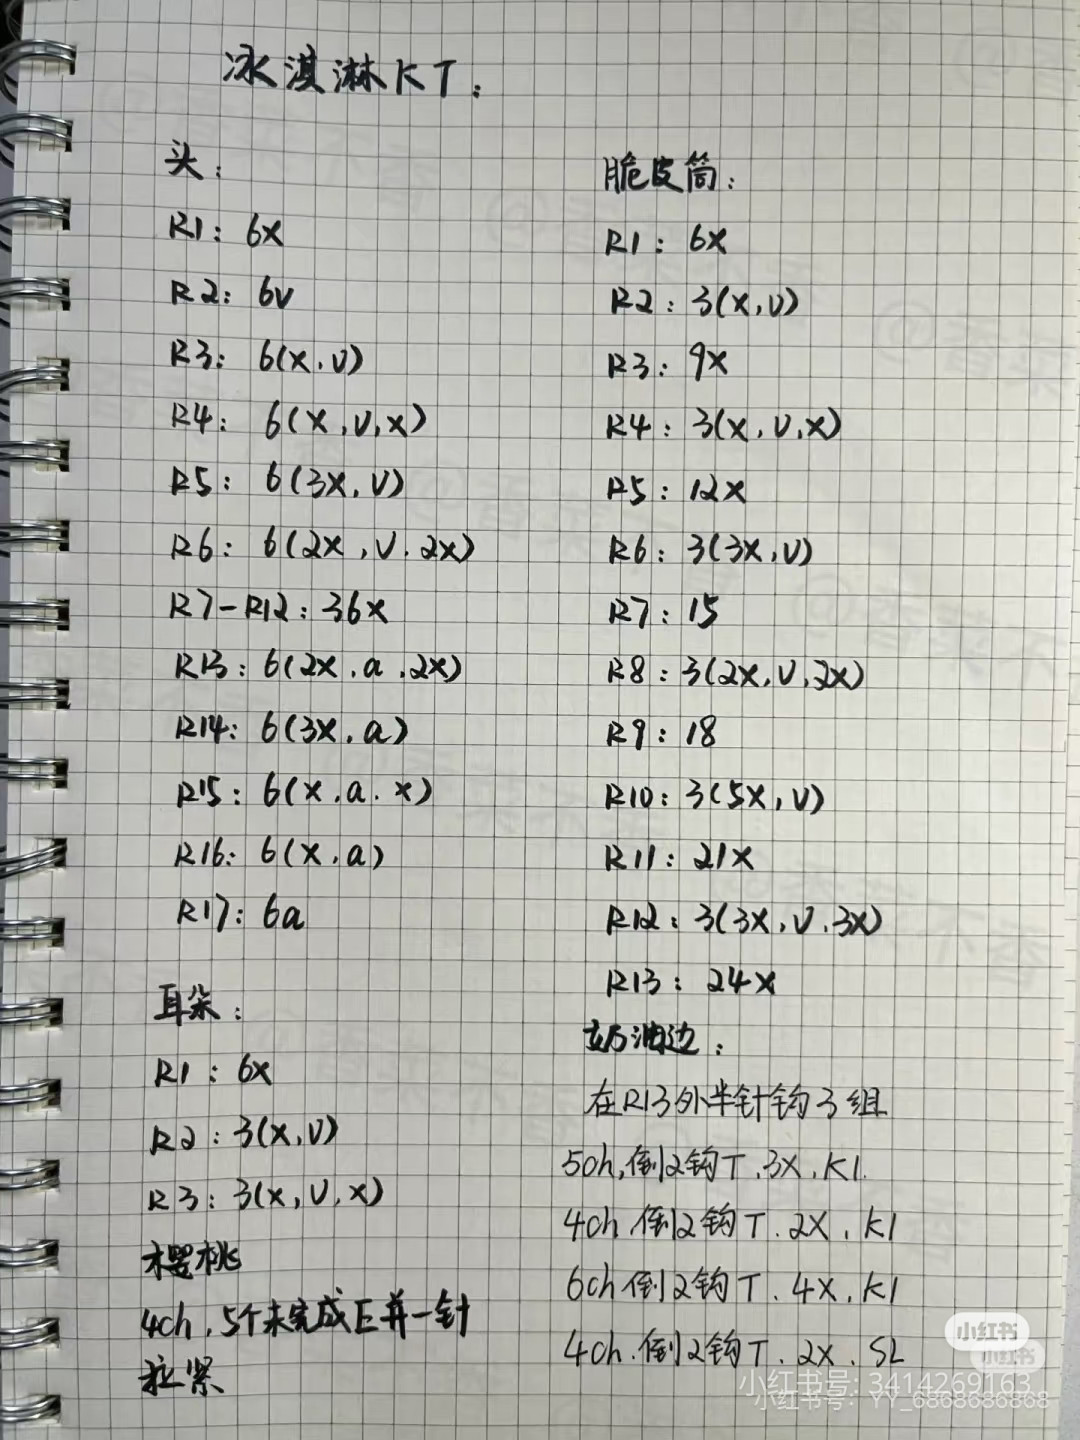 冰淇淋KT:
头:
R1: 6x
R2: 6v
R3: 6(x.v)
R4: 6(x,v,x)
R5: 6(3x,v)
R6: 6(2x,v.2x)
R7-R12: 36x
R13: 6(2x.a.2x)
R14: 6(3x.a)
R15: 6(x.a.x)
R16: 6(x.a)
R17: 6a
耳朵:
R1: 6x
R2: 3(x,v)
R3: 3(x,v.x)
樱桃
4ch,5个未完成E并一针
拉紧
脆皮筒:
R1: 6x
R2: 3(x,v)
R3: 9x
R4: 3(x,v,x)
R5: 12x
R6: 3(3x,v)
R7: 15
R8: 3(2x,v,2x)
R9: 18
R10: 3(5x,v)
R11: 21x
R12: 3(3x,v.3x)
R13: 24x
奶油边:
在R13外半针钩3组
5ch,倒2钩T.3x.K1.
4ch.倒2钩T.2x.K1
6ch倒2钩T.4x.K1
4ch.倒2钩T.2x.SL
小红书
小红书
小红书号: 3414269163
小红书号: YY_6868686868